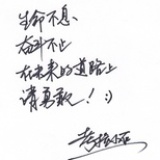 生命不息
奋斗不止
在未来的道路上
请勇敢!:)